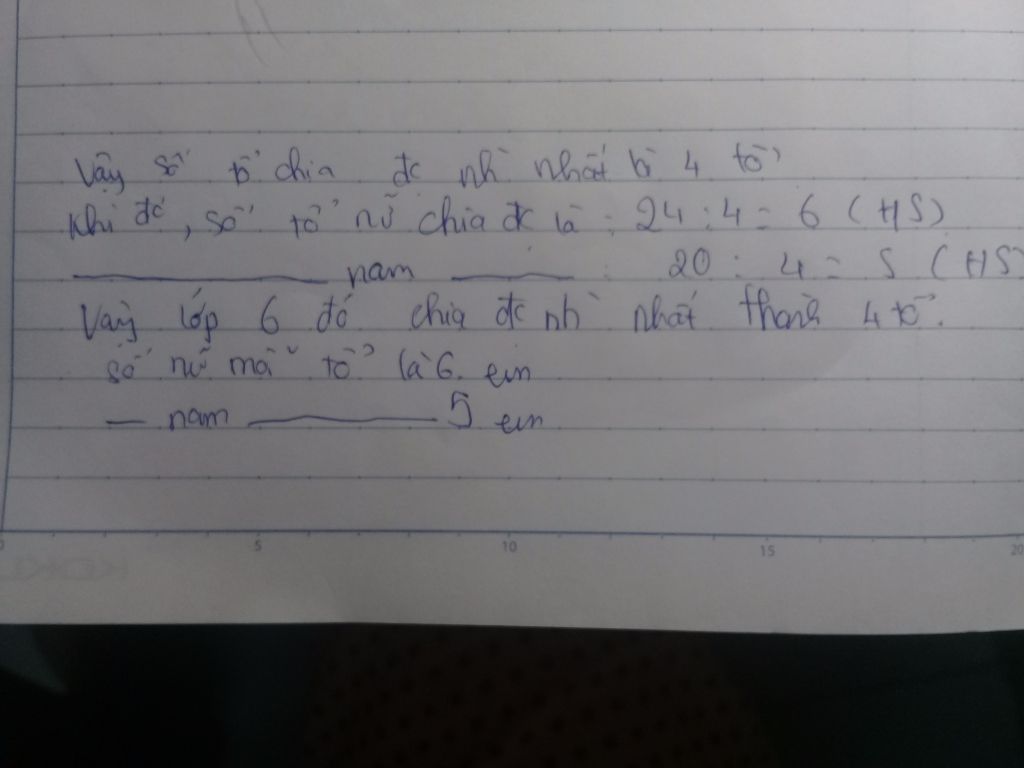 Vậy số tổ chia đc nh` nhất là 4 tổ
Khi đó, số tổ nữ chia đc là : 24 : 4 = 6 (HS)
nam : 20 : 4 = 5 (HS)
Vậy lớp 6 đó chia đc nh` nhất thành 4 tổ.
số nữ mỗi tổ là 6. em
nam 5 em
0 5 10 15 20